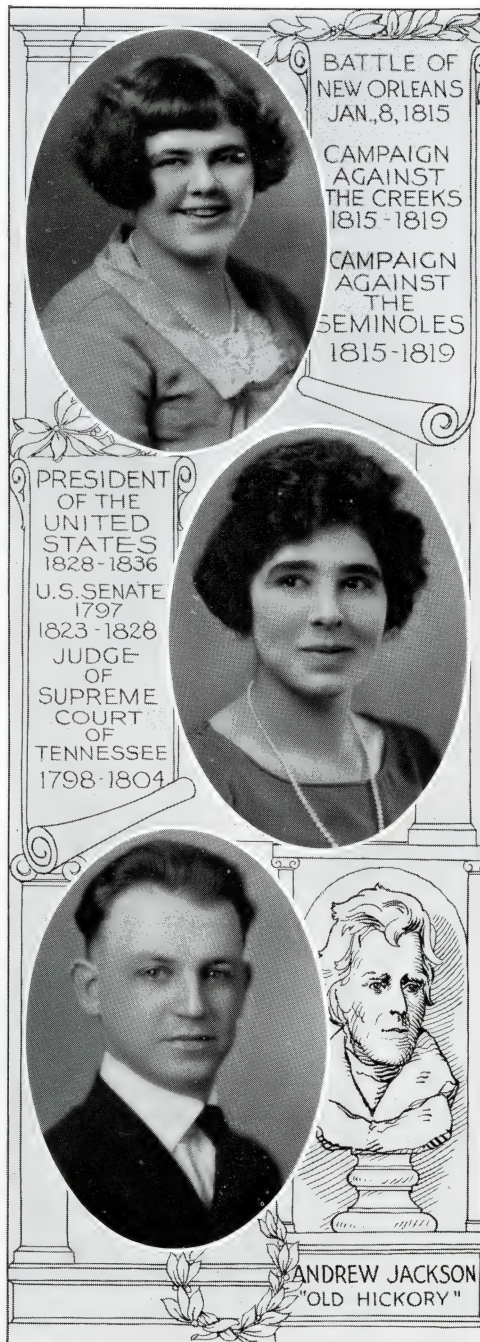 BATTLE OF
NEW ORLEANS
JAN., 8, 1815
CAMPAIGN
AGAINST
THE CREEKS
1815-1819
CAMPAIGN
AGAINST
THE
SEMINOLES
1815-1819
PRESIDENT
OF THE
UNITED
STATES
1828-1836
U.S. SENATE
1797
1823-1828
JUDGE
OF
SUPREME
COURT
OF
TENNESSEE
1798-1804
ANDREW JACKSON
"OLD HICKORY"